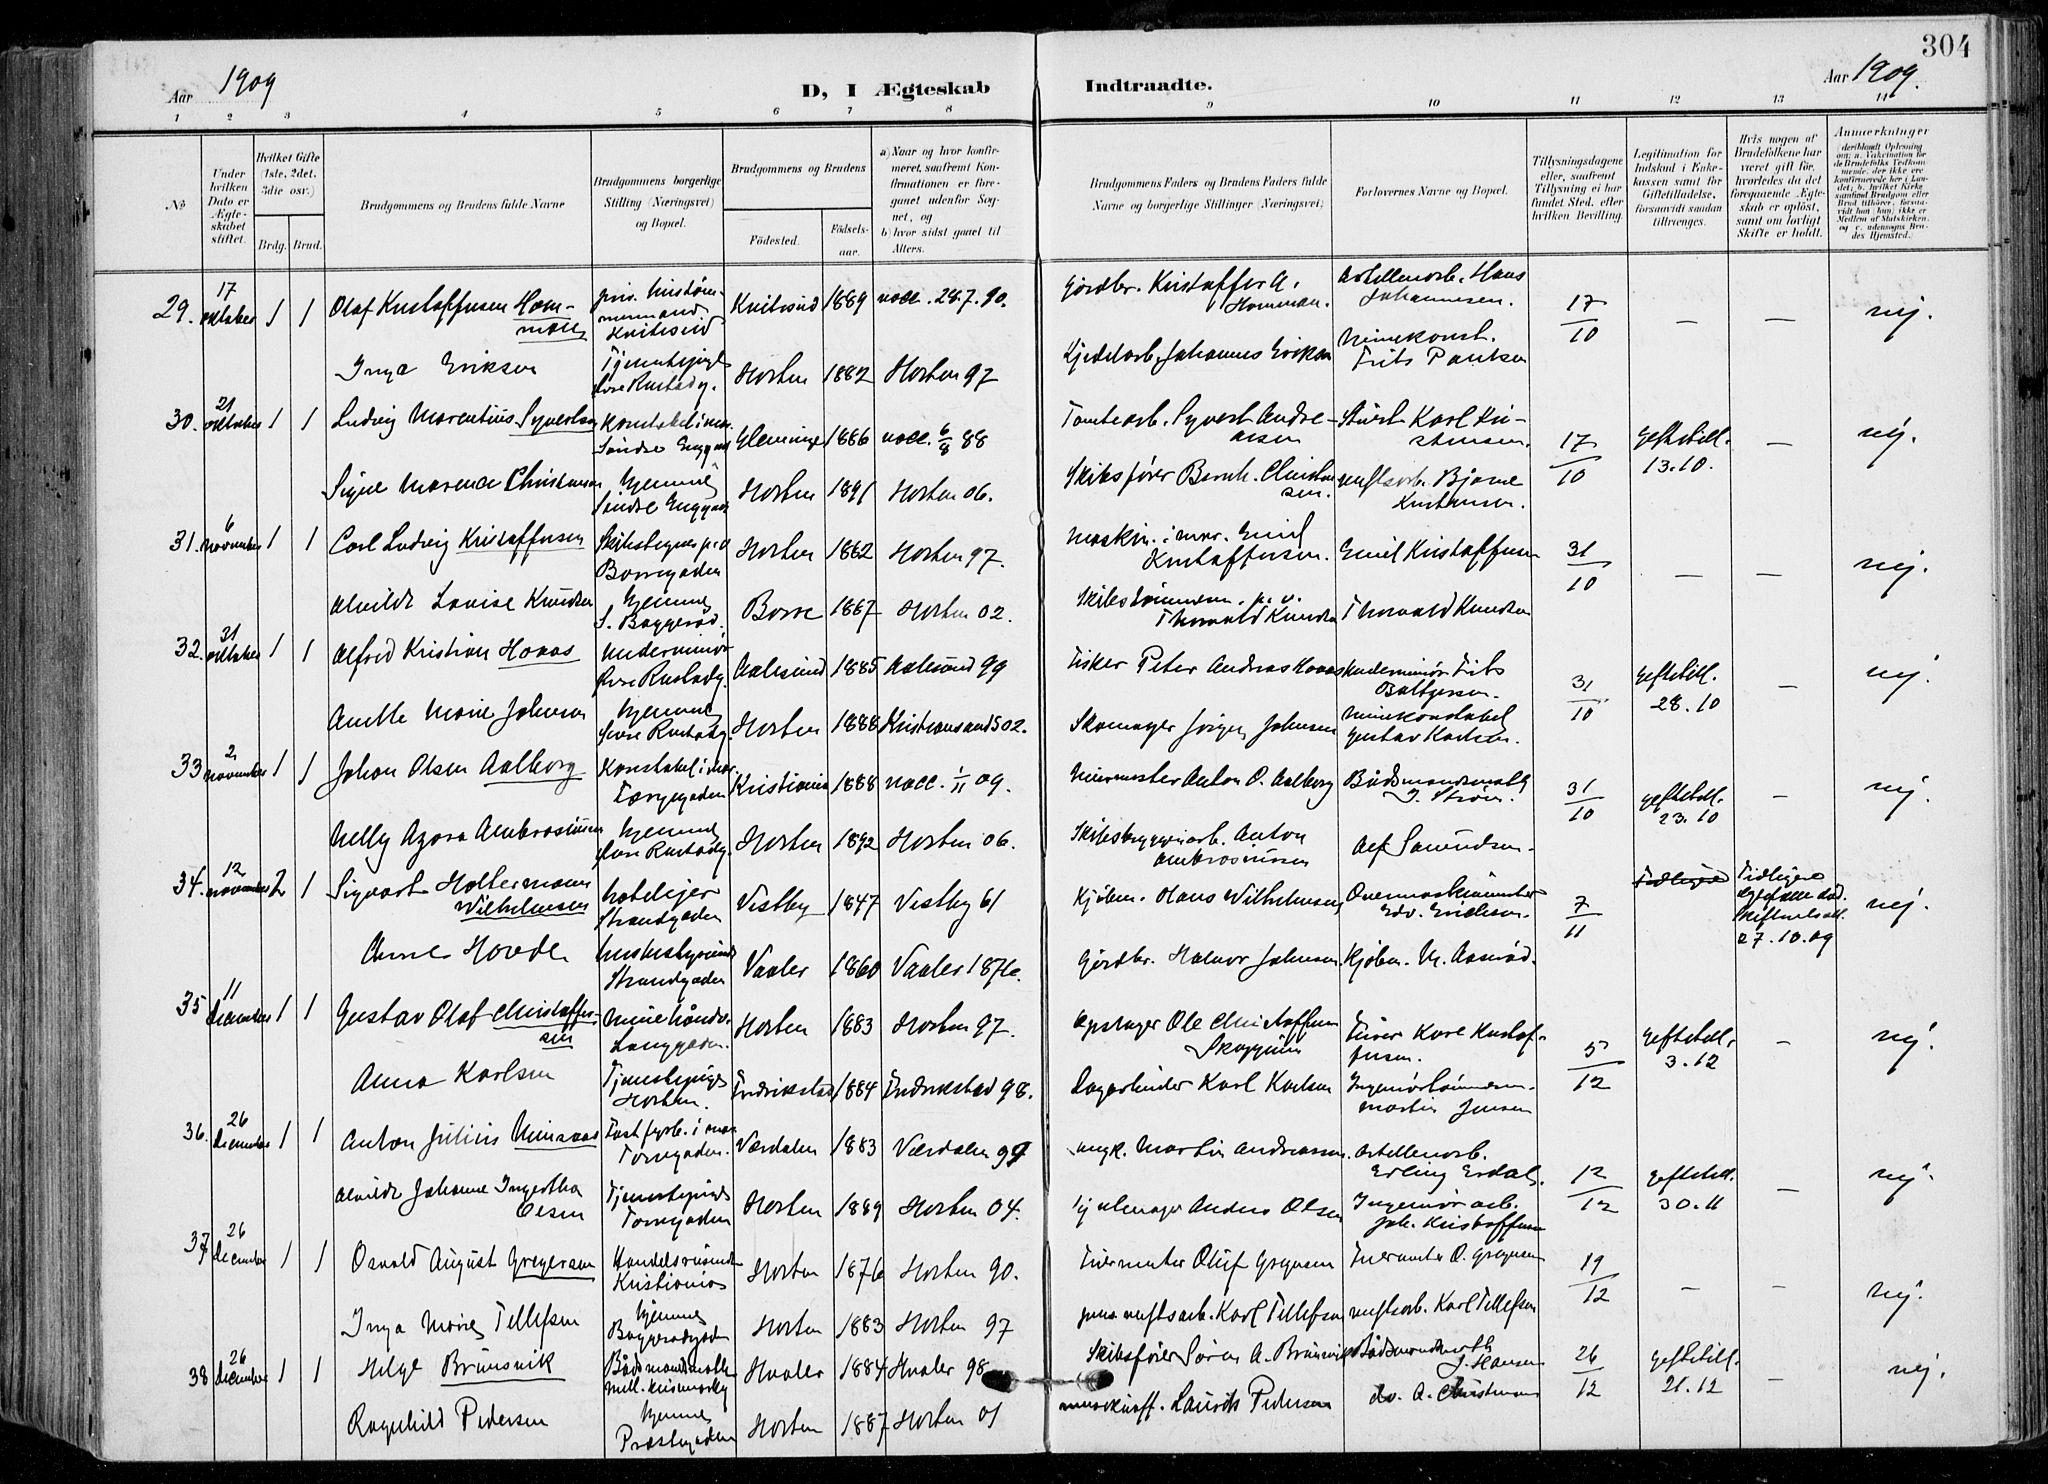 304
Aar 1909
D, I Ægteskab Indtraadte.
Aar 1909.
1 2 3 4 5 6 7 8 9 10 11 12 13 14
No
Under hvilken Dato er Ægteskabet stiftet.
Hvilket Gifte (1ste, 2det, 3die osv.)
Brdg. Brud.
Brudgommens og Brudens fulde Navne
Brudgommens borgerlige Stilling (Næringsvei) og Bopæl.
Brudgommens og Brudens
Fødested.
Fødselsaar.
a) Naar og hvor konfirmeret, saafremt Konfirmationen er foregaaet udenfor Sognet, og
b) hvor sidst gaaet til Alters.
Brudgommens Faders og Brudens Faders fulde Navne og borgerlige Stillinger (Næringsvei)
Forlovernes Navne og Bopæl.
Tillysningsdagene eller, saafremt Tillysning ei har fundet Sted, efter hvilken Bevilling.
Legitimation for Indskud i Enkekassen samt for Giftetilladelse, forsaavidt saadan tiltrænges.
Hvis nogen af Brudefolkene har været gift før, hvorledes da det foregaaende Ægteskab er opløst, samt om lovligt Skifte er holdt.
Anmerkninger
29. 17 oktober 1 1 Olaf Kristoffersen Hommen Knitesrud 1889 vacc. 28.7.90. Gårdbr. Kristoffer A. Hommen. Artilleriarb. Hans Johannesen. 17/10 — — nej.
Inga Eriksen Tjenestepige Horten 1882 Horten 97 Kjedelarb. Johannes Eriksen Minekonst. Frits Paulsen
30. 21 oktober 1 1 Ludvig Marentius Syvertsen Konstabel i mar. Glemminge 1886 vacc. 6/8 88 Tomtearb. Syvert Andreasen Stuert Karl Kristensen. 17/10 Giftetill. 13.10. — nej.
Signe Marence Christensen hjemme Horten 1891 Horten 06. Skibsfører Bernh. Christensen. verftsarb. Bjarne Kristensen.
31. 6 november 1 1 Carl Ludvig Kristoffersen Borregaden Horten 1882 Horten 97. Maskin. i mar. Emil Kristoffersen. Emil Kristoffersen 31/10 — — nej.
Alvilde Lovise Knudsen hjemme Borre 1887 Horten 02. Skibstømmerm. p.v. Thorvald Knudsen Thorvald Knudsen
32. 31 oktober 1 1 Alfred Kristian Hovos Underminør Aalesund 1885 Aalesund 99 Fisker Peter Andreas Hovos Underminør Frits Baltzersen. 31/10 Giftetill. 28.10 — nej.
Anette Marie Johnsen hjemme Horten 1888 Kristiansand S 02. Skomager Jørgen Johnsen Minekonstabel Gustav Karlsen.
33 2 november 1 1 Johan Olsen Aalborg Konstabel i mar. Kristiania 1888 vacc. 1/11 09. Murmester Anton O. Aalborg Bådsmandsmath J. Strøm. 31/10 Giftetill. 23.10 — nej.
Nelly Azora Ambrosiussen hjemme Horten 1892 Horten 06. Skibsbyggeriarb. Anton Ambrosiussen Alf Samuelsen.
34. 12 november 2 1 Sigvart Holtermann Wilhelmsen hoteleier Strandgaden Vestby 1847 Vestby 61 Kjøbm. Hans Wilhelmsen Overmaskinmester Edv. Erichsen. 7/11 Tidligere Tidligere Ægtefælle død. Skifteretsatt. 27.10.09 nej.
Anne Hovde husbestyrerinde Strandgaden Vaaler 1860 Vaaler 1876. Gårdbr. Halvor Johnsen. Kjøbm. M. Aasrød.
35 11 December 1 1 Gustav Olaf Christoffersen Langgaden. Horten 1883 Horten 97. Opstager Ole Christoffersen Skoppum Fører Karl Kristoffersen. 5/12 Giftetill. 3.12 — nej.
Anna Karlsen Tjenestepige Horten. Fredrikstad 1884 Fredrikstad 98. Dagarbeider Karl Karlsen Ingeniørtømmerm. Martin Jensen
36. 26 December 1 1 Anton Julius Minsaas Fast fyrb. i mar. Torvegaden. Værdalen 1883 Værdalen 97 ungk. Martin Andreassen. Artilleriarb. Erling Erdal. 12/12 Giftetill. 30.11 — nej.
Alvilde Johanne Ingertha Olsen Tjenestepige Torvegaden Horten 1889 Horten 04. Hjulmager Anders Olsen Ingeniørarb. Joh. Kristoffersen
37 26 December 1 1 Osvald August Gregersen Handelsreisende Kristiania Horten 1876 Horten 90. Fyrmester Oluf Gregersen O. Gregersen 19/12 — — nej.
Inga Marie Tellefsen hjemme Horten 1883 Horten 97 verftsarb. Karl Tellefsen verftsarb. Karl Tellefsen
38 26 December 1 1 Helge Brunsvik Bådsmandsmath Hvaler 1884 Hvaler 98 Skibsfører Søren A. Brunsvik Bådsmandsmath J. Hansen 26/12 Giftetill. 21.12 — nej.
Ragnhild Pedersen hjemme Præstegaden Horten 1887 Horten 01 Laurits Pedersen do. A. Christensen